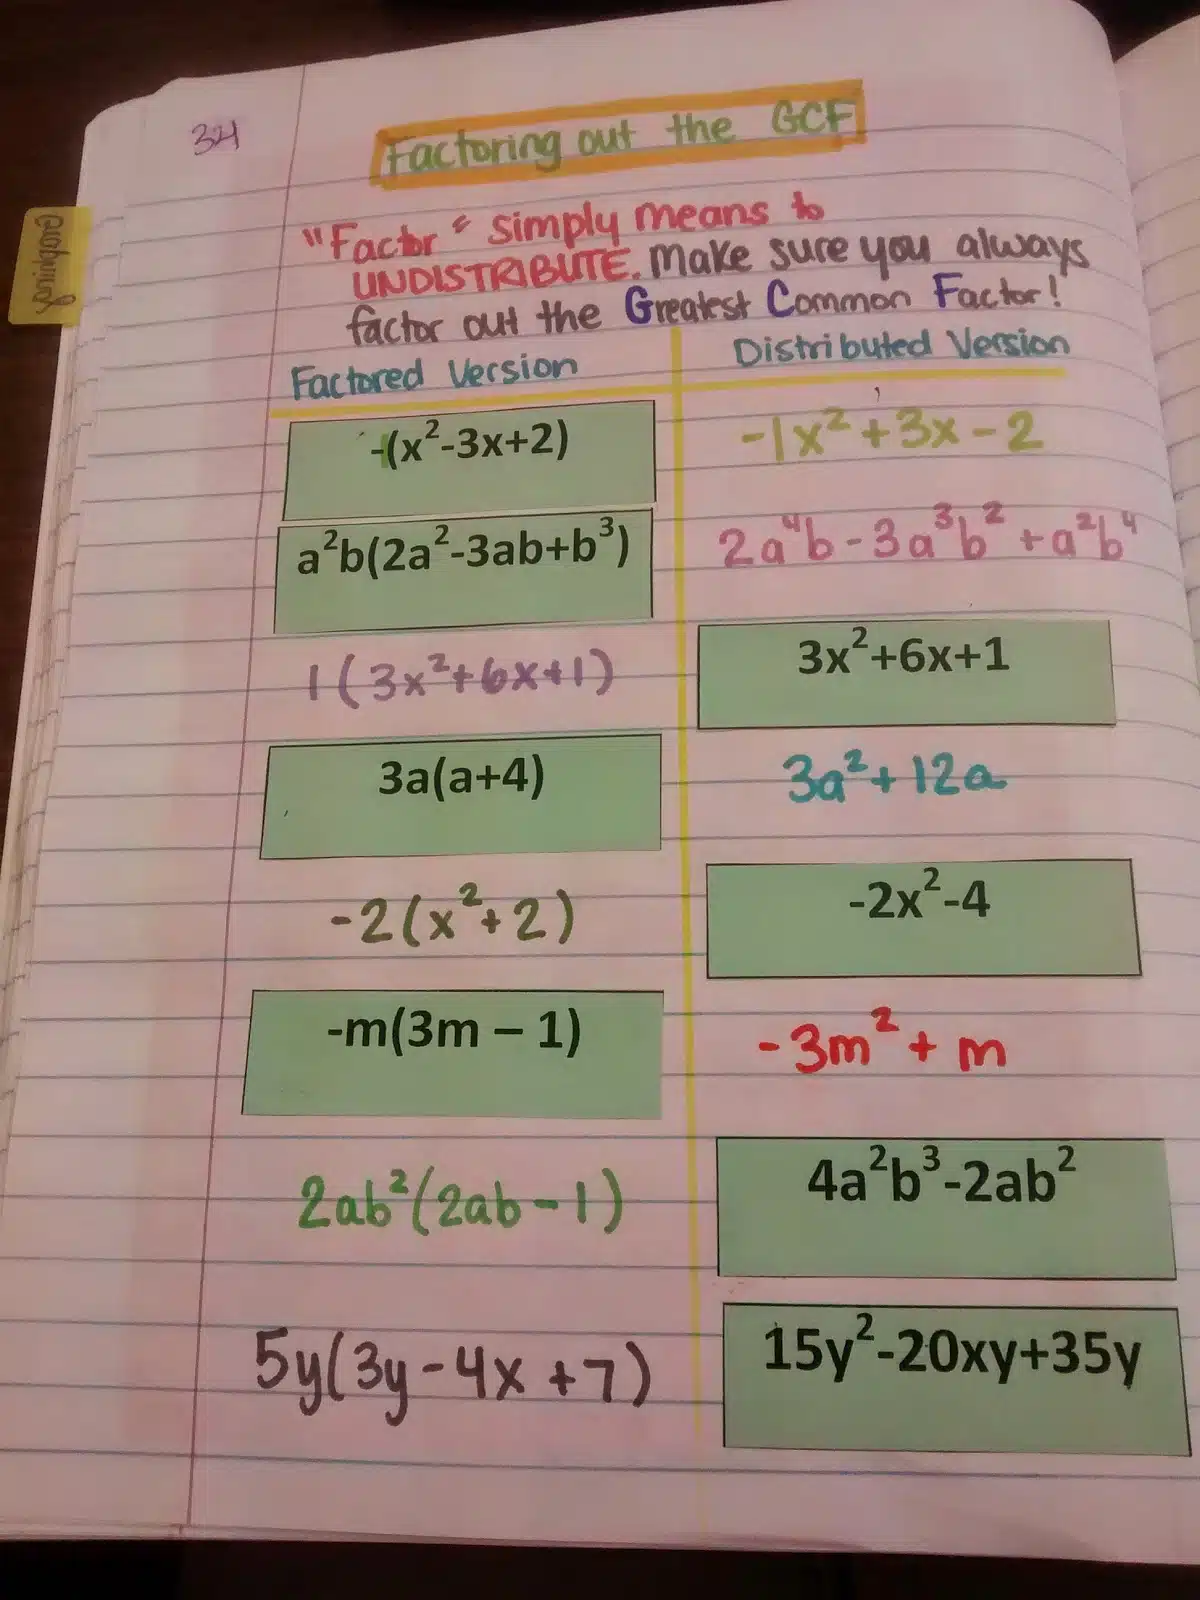 34
Factoring out the GCF
"Factor" simply means to
UNDISTRIBUTE. Make sure you always
factor out the Greatest Common Factor!
Factored Version Distributed Version
-1(x²-3x+2) -1x²+3x-2
a²b(2a²-3ab+b³) 2a⁴b-3a³b²+a²b⁴
1(3x²+6x+1) 3x²+6x+1
3a(a+4) 3a²+12a
-2(x²+2) -2x²-4
-m(3m – 1) -3m²+m
2ab²(2ab-1) 4a²b³-2ab²
5y(3y-4x+7) 15y²-20xy+35y